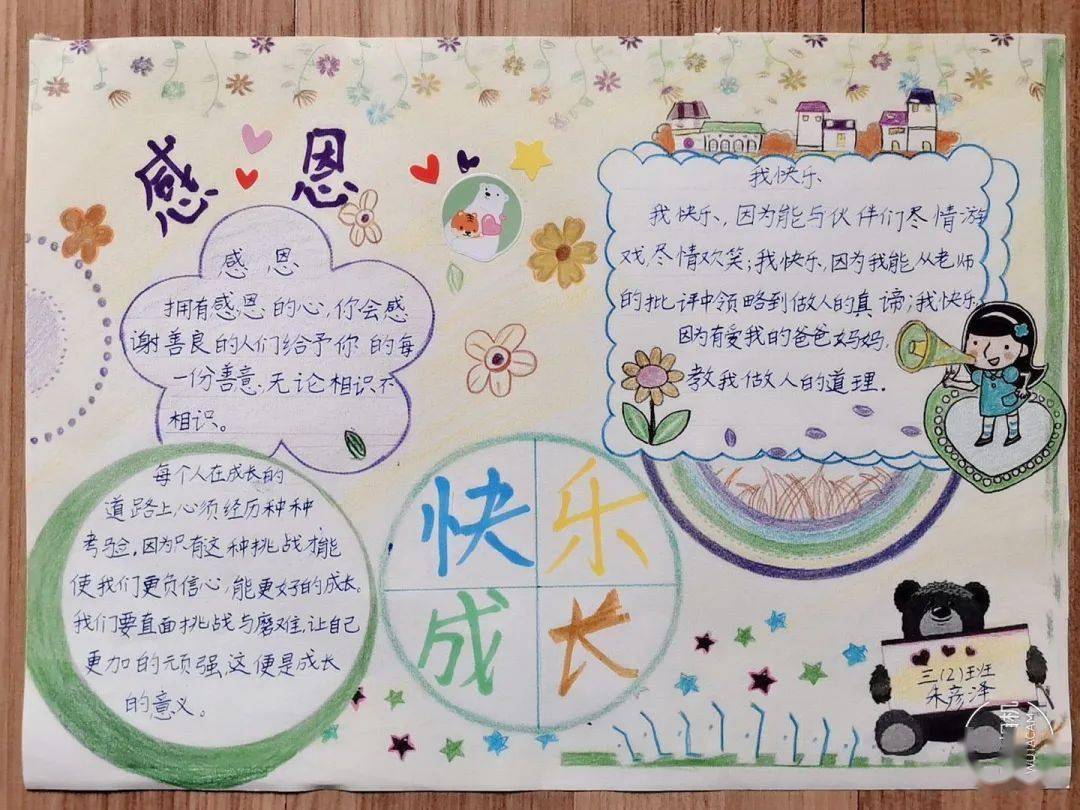 感恩
感恩
拥有感恩的心,你会感
谢善良的人们给予你的每
一份善意,无论相识不
相识。
我快乐
我快乐,因为能与伙伴们尽情游
戏,尽情欢笑;我快乐,因为我能从老师
的批评中领略到做人的真谛;我快乐
因为有爱我的爸爸妈妈,
教我做人的道理.
每个人在成长的
道路上必须经历种种
考验,因为只有这种挑战才能
使我们更负信心,能更好的成长。
我们要直面挑战与磨难,让自己
更加的顽强,这便是成长
的意义。
快乐
成长
三(2)班
朱彦泽
WUTACAM